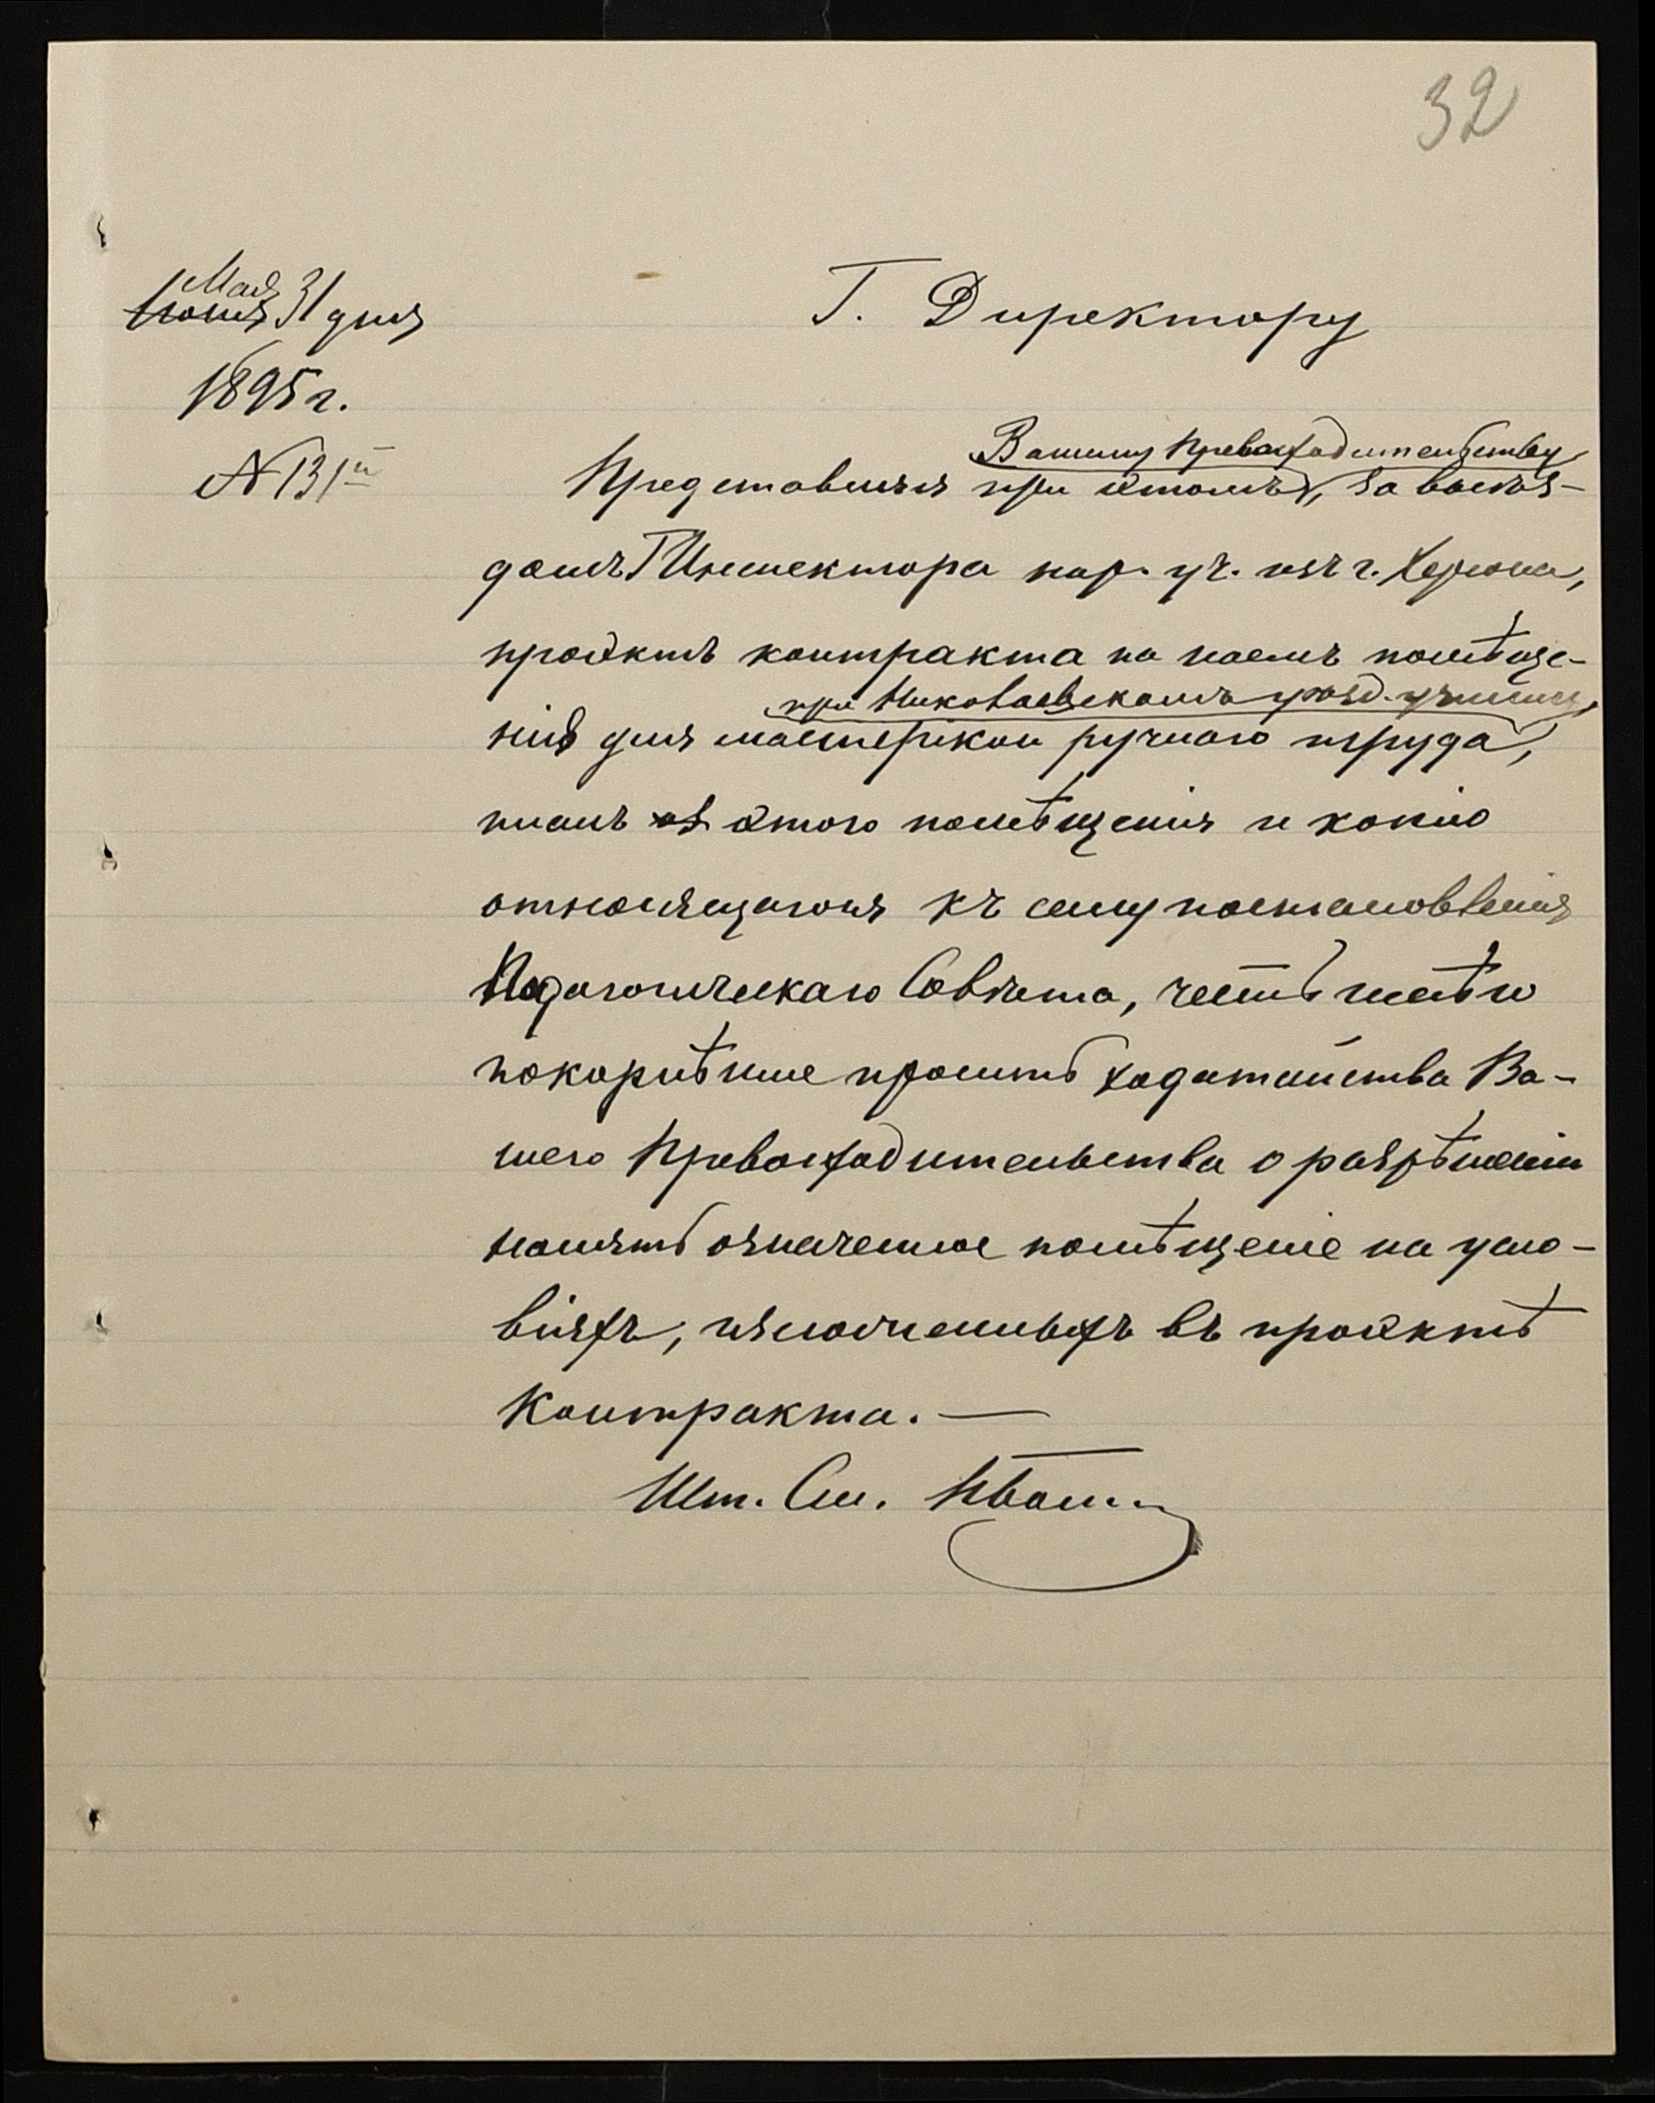 32
Мая
Іюня 31 дня
1895 г.
№ 131
Г. Директору
Вашему Превосходительству
Представляя при этомъ, за выѣз-
домъ Г Инспектора нар. уч. изъ г. Херсона,
проэктъ контракта на наемъ помѣще-
при Николаевскомъ уѣзд. училищѣ
нія для мастерской ручного труда,
планъ этого помѣщенія и копію
относящагося къ сему постановленія
Педагогическаго Совѣта, честь имѣю
покорнѣйше просить ходатайства Ва-
шего Превосходительства о разрѣшеніи
нанять означенное помѣщеніе на усло-
віяхъ, изложенныхъ въ проэктѣ
контракта. —
Шт. См.